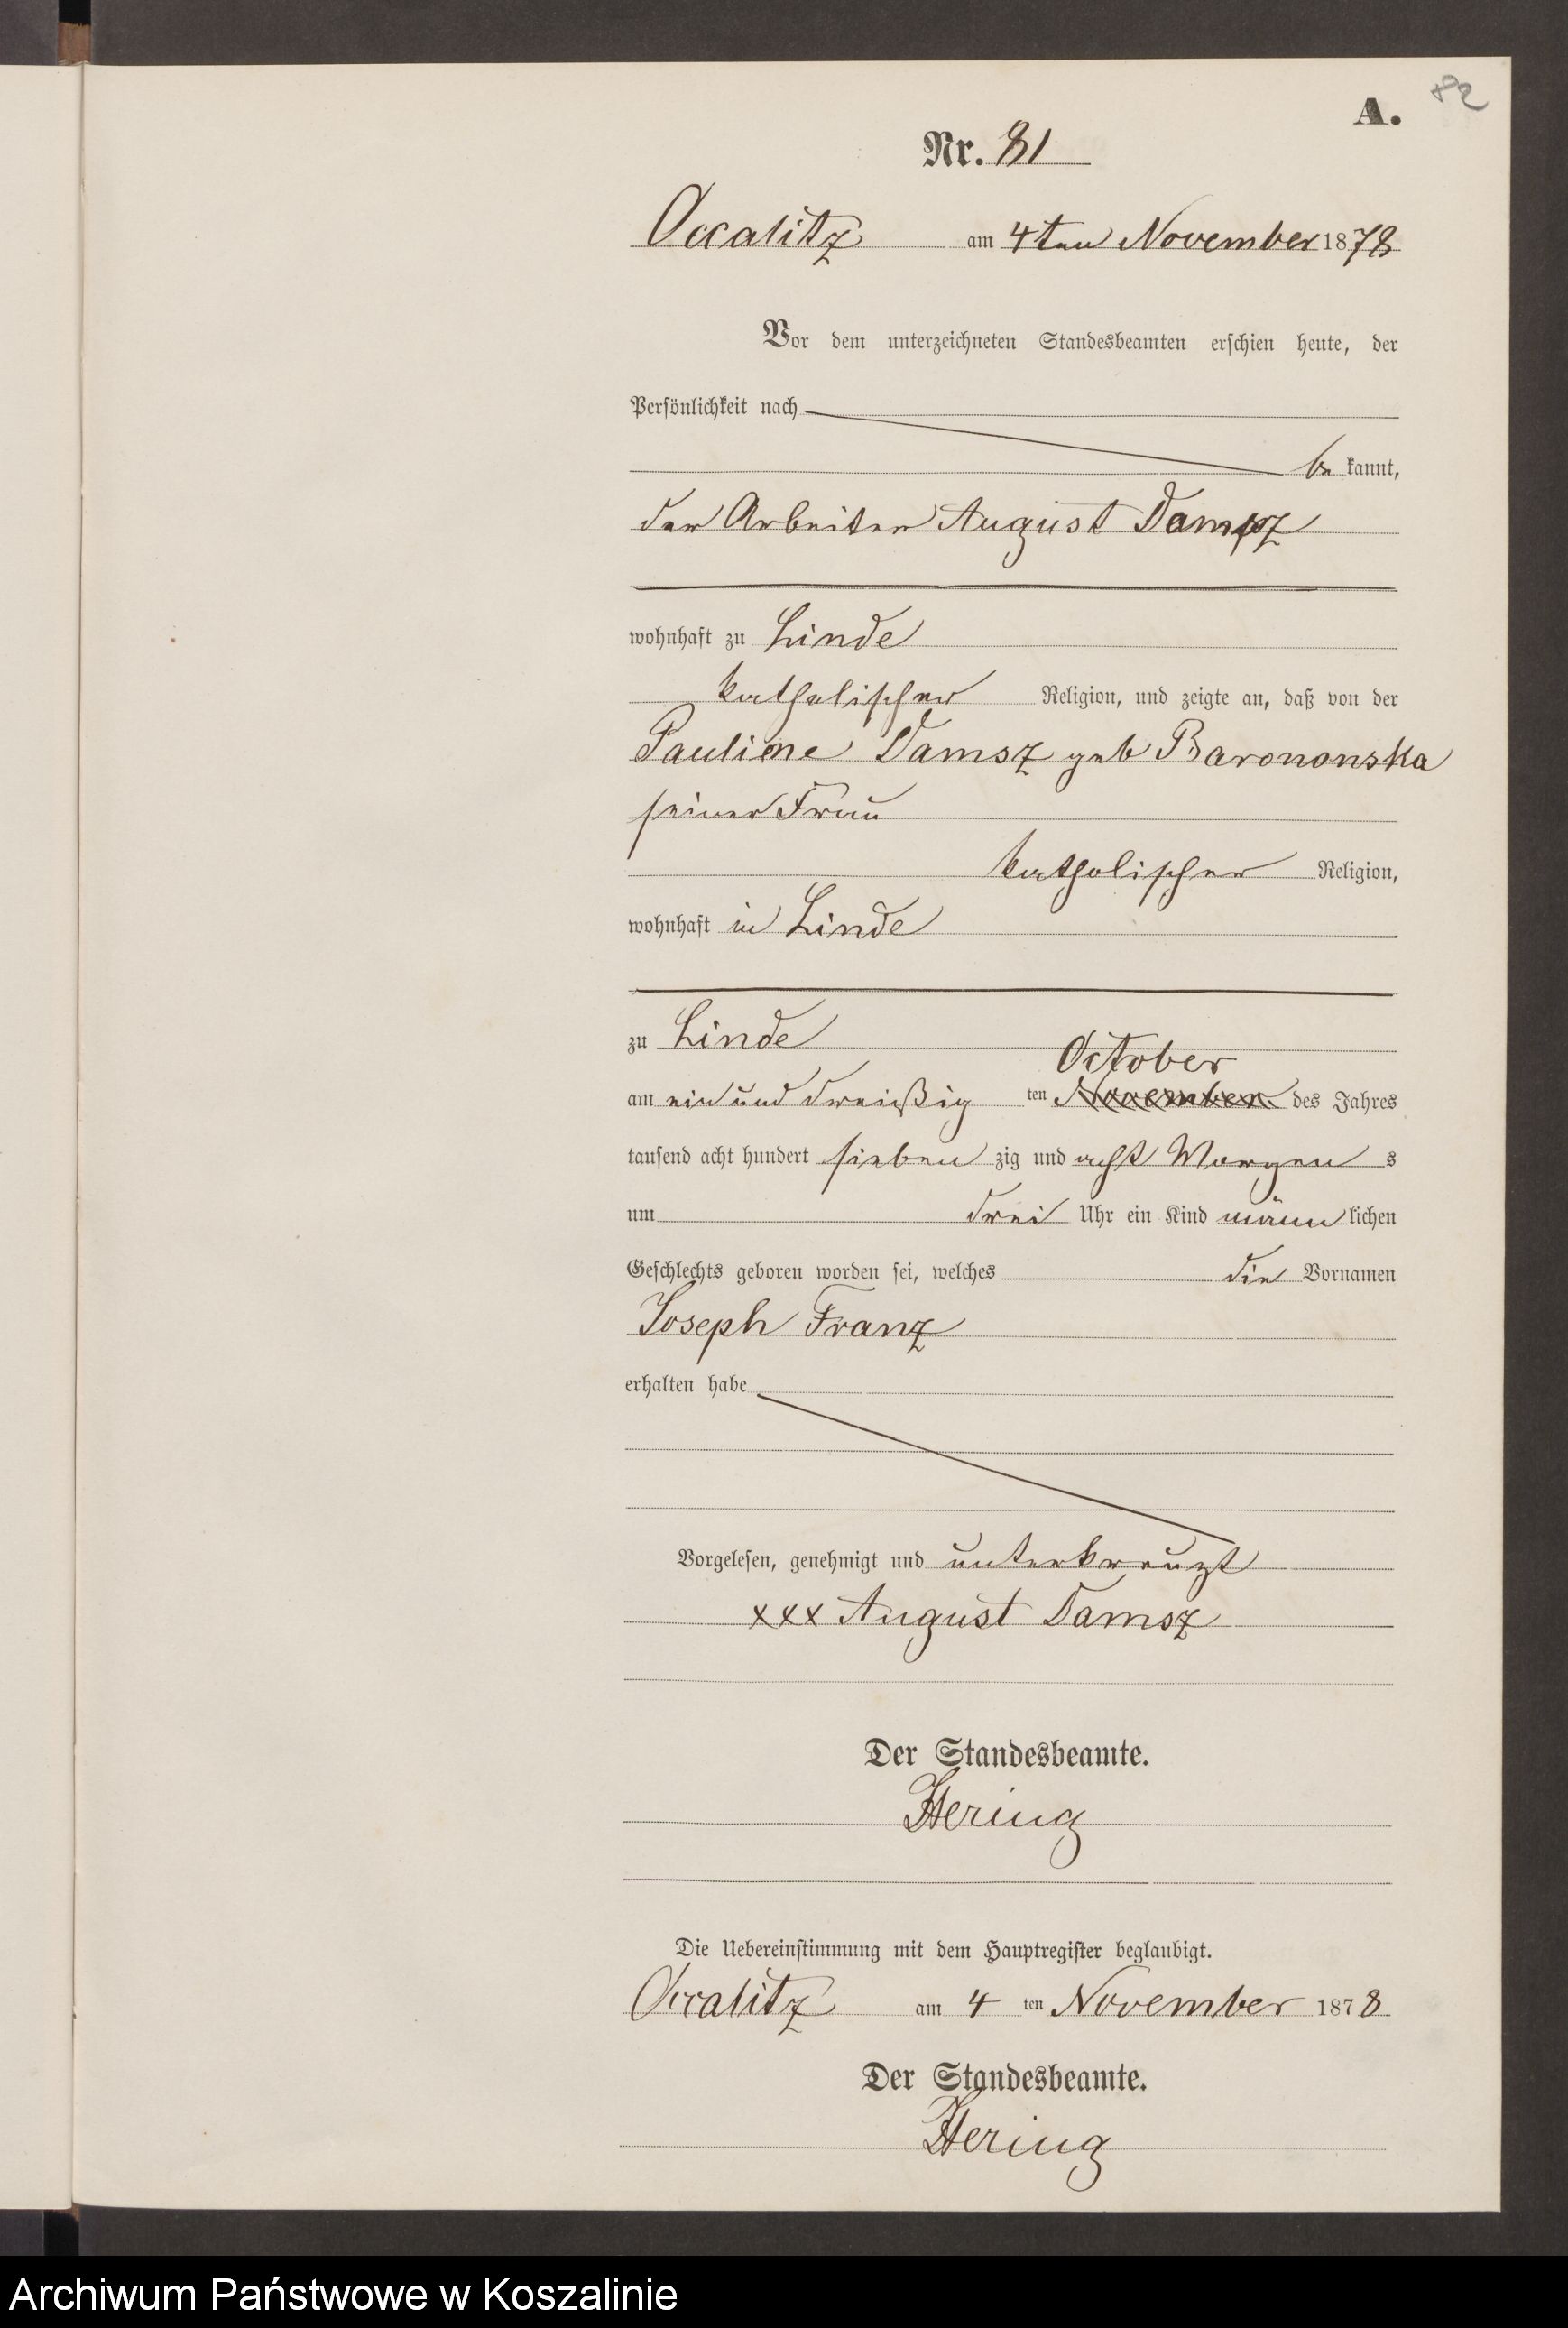 82
A.
Nr. 81
Occalitz am 4ten November 1878
Vor dem unterzeichneten Standesbeamten erschien heute, der
Persönlichkeit nach
be kannt,
der Arbeiter August Damsz
wohnhaft zu Linde
katholischer Religion, und zeigte an, daß von der
Pauline Damsz geb Barononska
seiner Frau
katholischer Religion,
wohnhaft in Linde
zu Linde
October
am ein und dreißig ten November des Jahres
tausend acht hundert sieben zig und acht Morgen s
um drei Uhr ein Kind männ lichen
Geschlechts geboren worden sei, welches die Vornamen
Joseph Franz
erhalten habe
Vorgelesen, genehmigt und unterkreuzt
xxx August Damsz
Der Standesbeamte.
Hering
Die Uebereinstimmung mit dem Hauptregister beglaubigt.
Occalitz am 4 ten November 1878
Der Standesbeamte.
Hering
Archiwum Państwowe w Koszalinie